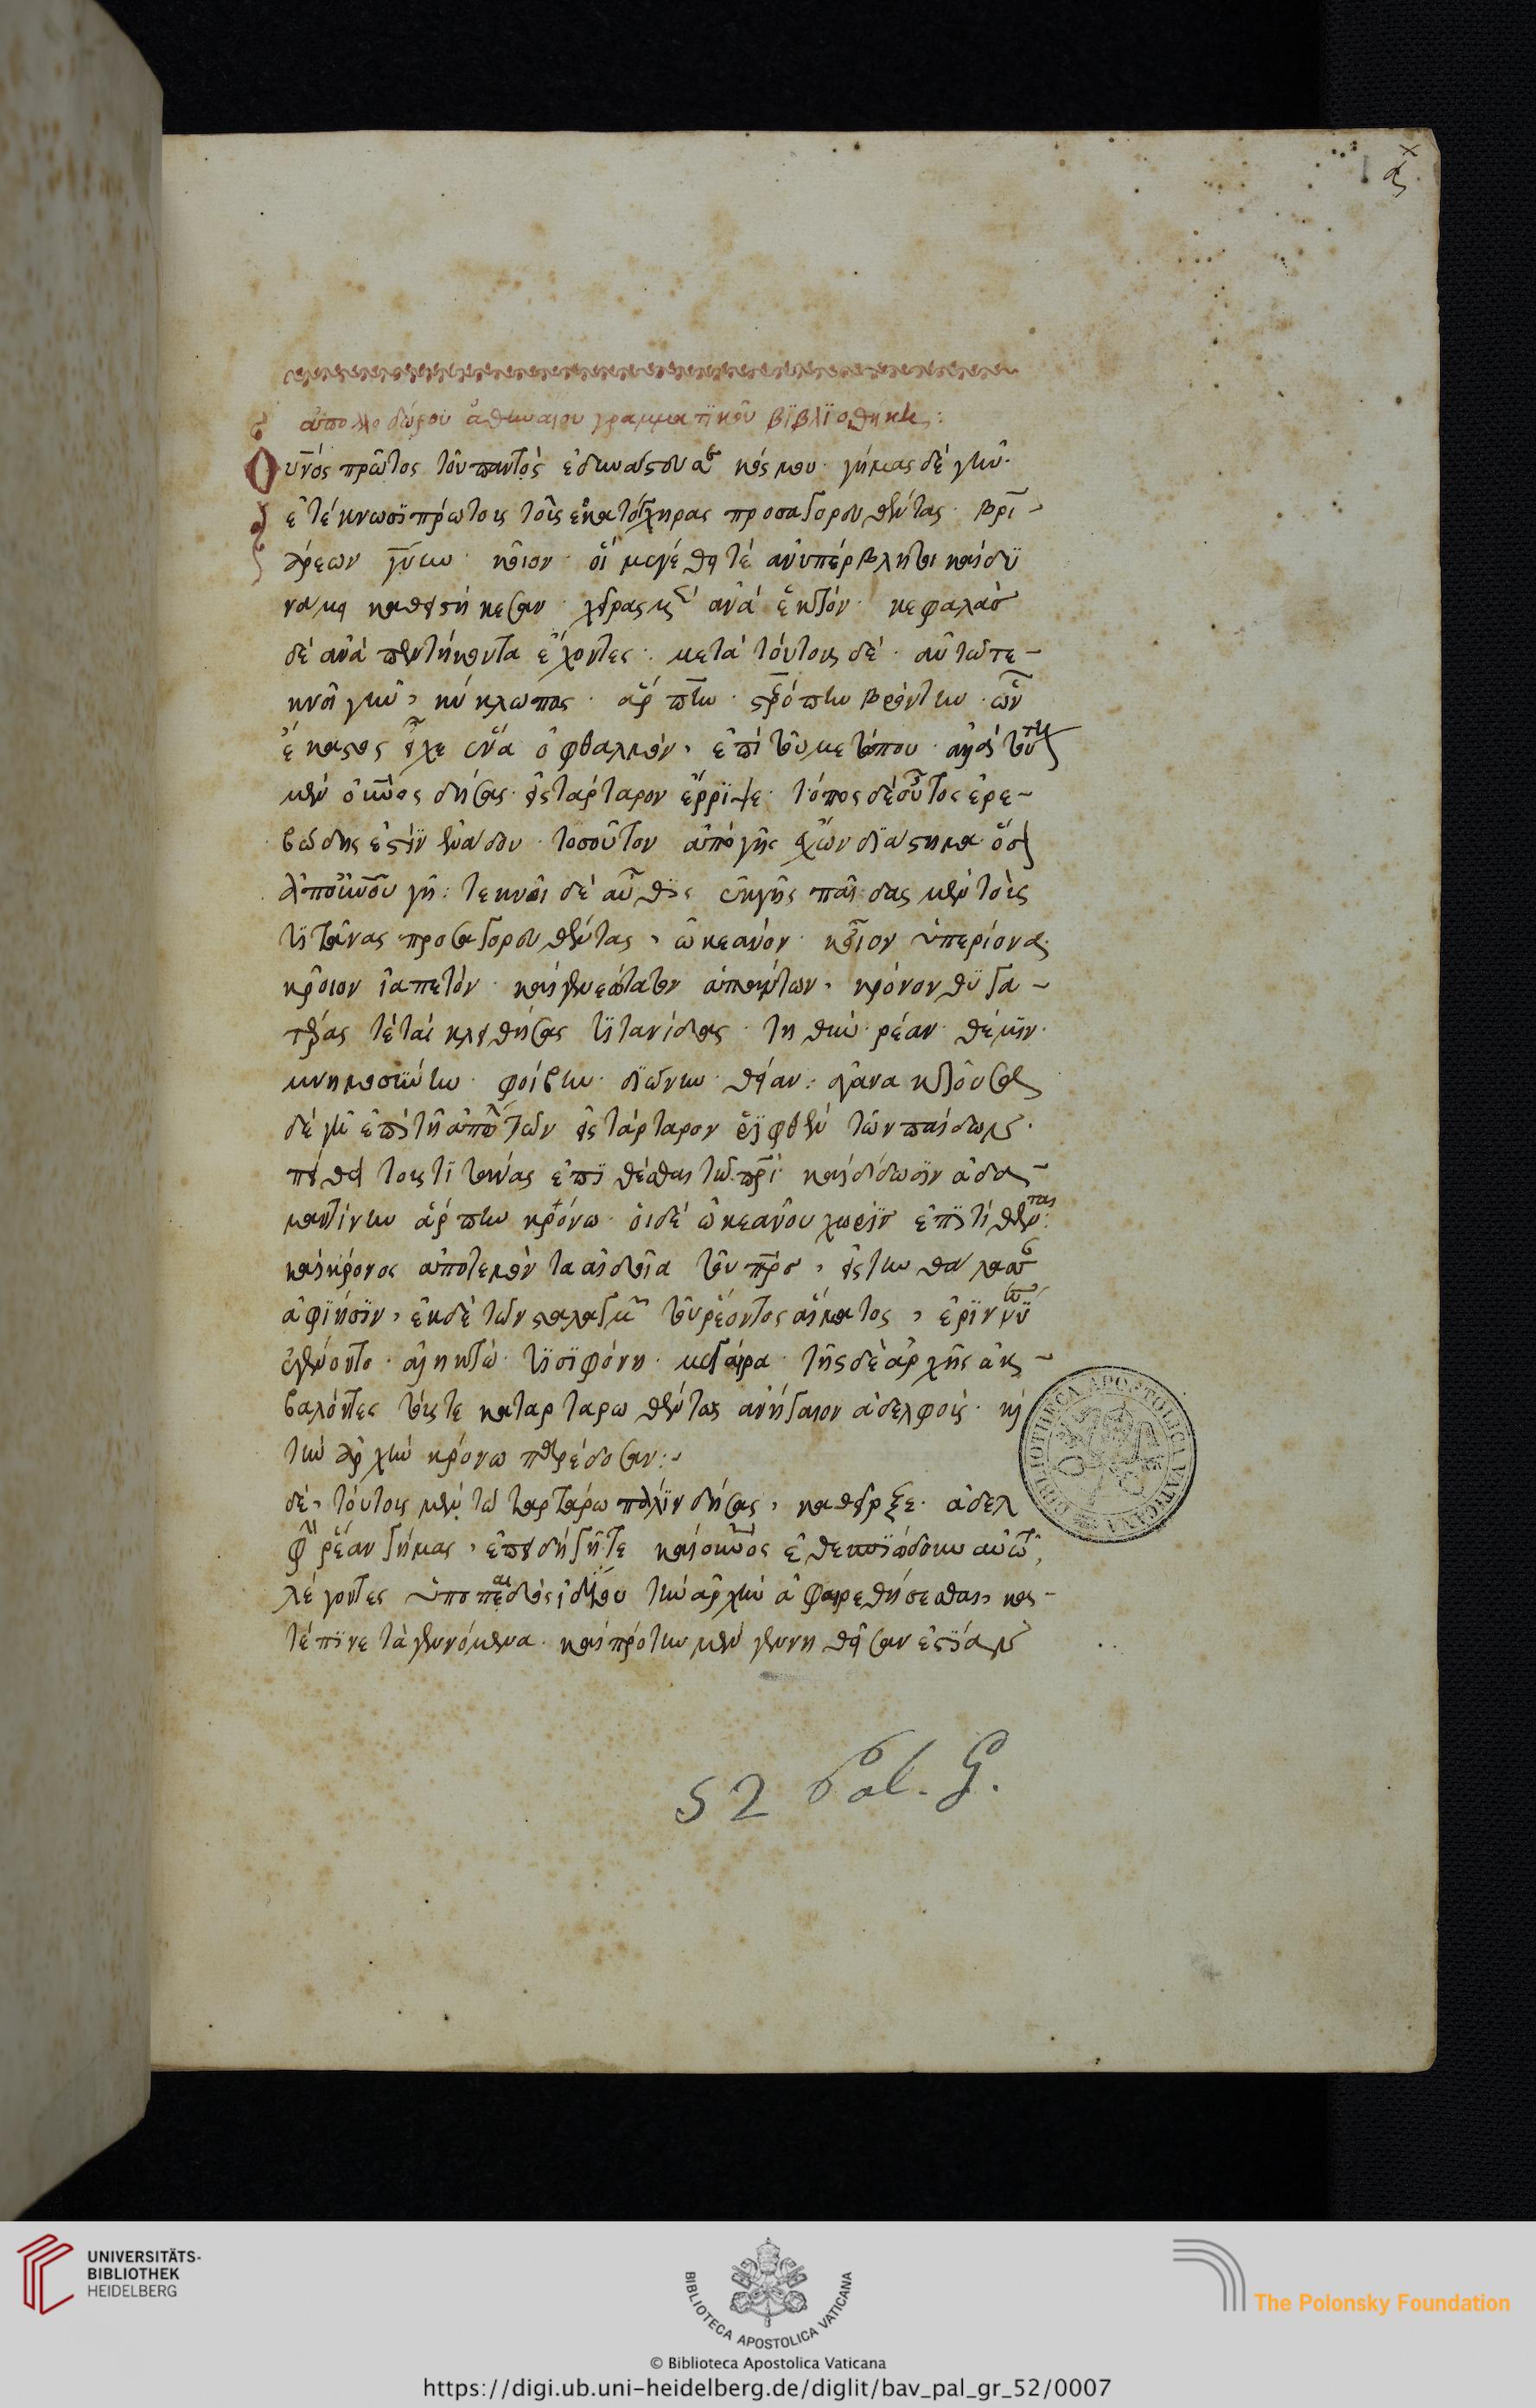 α
ἀπολλοδώρου ἀθηναίου γραμματϊκοῦ βϊβλϊοθήκης:
Οὐνὸς πρῶτος τοῦ παντὸς ἐδυνάστευσε κόσμου· γήμας δὲ γῆν·
ἐτέκνωσϊ πρώτοις τοὺς ἑκατόγχηρας προσαγορευθέντας· βρϊ-
άρεων γύην· κοῖον· οἵ μεγέθει τὲ ἀνυπέρβλητοι καὶ δυ
νάμει καθειστήκεσαν· χεῖρας μὲν ἀνὰ ἑκατόν· κεφαλὰς
δὲ ἀνὰ πεντήκοντα ἔχοντες· μετὰ τούτους δὲ· αὐτῶ τε-
κνοῖ γῆ, κύκλωπας· ἄρπην· στερόπην βρόντην· ὧν
ἕκαστος εἶχε ἕνα ὀφθαλμὸν, ἐπὶ τοῦ μετώπου· ἀλλὰ τούτους
μὲν ὀυνὸς δήσας· εἰς τάρταρον ἔρρϊψε· τόπος δὲ οὗτος ἐρε-
βώδης ἐστὶν ἐν ἅδου· τοσοῦτον ἀπὸ γῆς ἔχων διάστημα ὅσον
ἀπ' οὐνοῦ γῆ: τεκνοῖ δὲ αὖθϊς ἐκ γῆς παῖδας μὲν τοὺς
τϊτᾶνας προσαγορευθέντας, ὠκεανὸν· κοῖον ὑπερίονα·
κρόιον ἰαπετόν· καὶ νεώτατον ἁπάντων, κρόνον θυγα-
τέρας τὲ τὰς κληθήσας τϊτανίδας· τηθὺν· ρέαν· θέμϊν·
μνημοσύνην· φοίβην· διώνην· θείαν: ἀγανακτοῦσα
δὲ γῆ ἐπὶ τῆ ἀπωλεία τῶν εἰς τάρταρον ῥϊφθὲν τῶν παίδων·
πείθει τοὺς τϊτάνας ἐπϊθέσθαι τῶ πρϊ· καὶ δίδωσϊν ἀδα-
μαντίνην ἅρπην κρόνω· οἱ δὲ ὠκεανοῦ χωρὶς ἐπϊτίθενται:
καὶ κρόνος ἀποτεμὼν τὰ αἰδοῖα τοῦ πρς, εἰς τὴν θάλασσαν
ἀφϊησϊν, ἐκ δὲ τῶν σταλαγμῶν τοῦ ῥέοντος αἵματος, ἐρϊννύες
ἐγένοντο· ἀληκτὼ· τϊσϊφόνη· μεγαίρα· τῆς δὲ ἀρχῆς ἐκ-
βαλόντες τούς τε καταρταρωθέντας ἀνήγαγον ἀδελφοὺς· καὶ
τὴν ἀρχὴν κρόνω παρέδοσαν:
δὲ, τούτους μὲν τῶ ταρτάρω πάλιν δήσας, καθεῖρξε· ἀδελ
φὴν ρέαν γήμας, ἐπειδὴ γῆ τε καὶ οὐνὸς ἐθεσπϊώδουν αὐτῶ,
λέγοντες ὑπὸ παιδὸς ἰδίου τὴν ἀρχὴν ἀφαιρεθήσεσθαι, κα-
τέπϊνε τὰ γενόμενα· καὶ πρώτην μὲν γεννηθεῖσαν ἑστίαν
BIBLIOTHECA APOSTOLICA VATICANA
52 Pal. G.
UNIVERSITÄTS-
BIBLIOTHEK
HEIDELBERG
BIBLIOTECA APOSTOLICA VATICANA
The Polonsky Foundation
© Biblioteca Apostolica Vaticana
https://digi.ub.uni-heidelberg.de/diglit/bav_pal_gr_52/0007